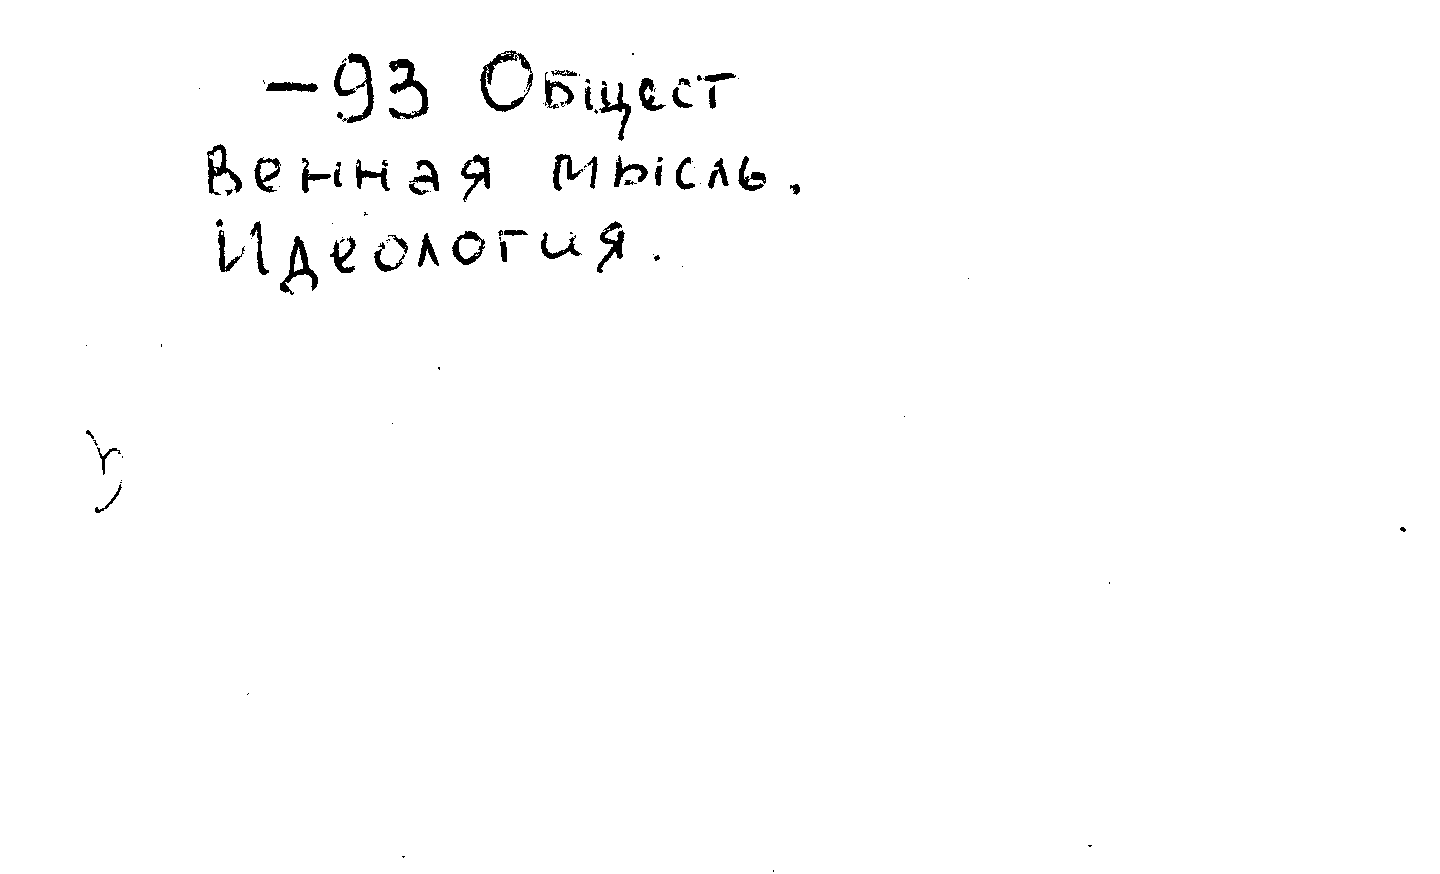 -93 Общест
венная мысль.
Идеология.